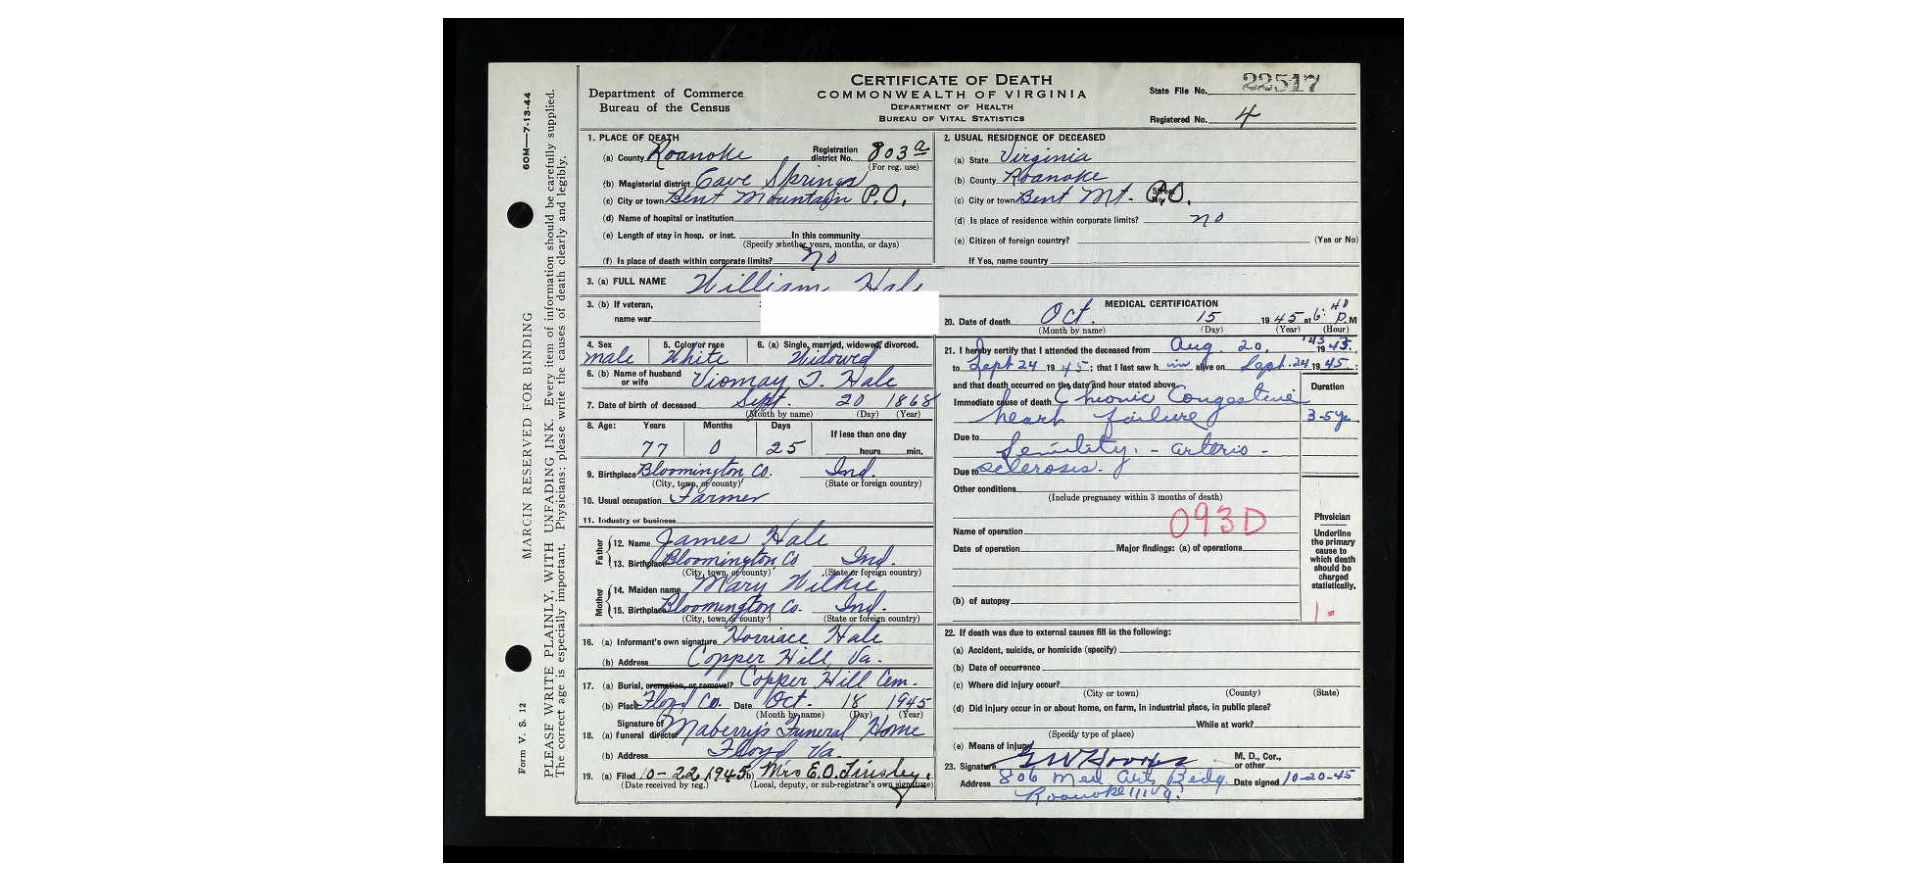 60M—7-13-44
MARGIN RESERVED FOR BINDING
Form V. S. 12
PLEASE WRITE PLAINLY, WITH UNFADING INK. Every item of information should be carefully supplied.
The correct age is especially important. Physicians: please write the causes of death clearly and legibly.
Department of Commerce
Bureau of the Census
CERTIFICATE OF DEATH
COMMONWEALTH OF VIRGINIA
DEPARTMENT OF HEALTH
BUREAU OF VITAL STATISTICS
State File No. 22517
Registered No. 4
1. PLACE OF DEATH
(a) County Roanoke Registration district No. 803a
(For reg. use)
(b) Magisterial district Cave Springs
(c) City or town Bent Mountain P.O.
(d) Name of hospital or institution
(e) Length of stay in hosp. or inst. In this community
(Specify whether years, months, or days)
(f) Is place of death within corporate limits? no
2. USUAL RESIDENCE OF DECEASED
(a) State Virginia
(b) County Roanoke
(c) City or town Bent Mt. P.O.
(d) Is place of residence within corporate limits? no
(e) Citizen of foreign country? (Yes or No)
If Yes, name country
3. (a) FULL NAME William Hale
3. (b) If veteran,
name war
4. Sex male
5. Color or race White
6. (a) Single, married, widowed, divorced. Widowed
6. (b) Name of husband or wife Viomay T. Hale
7. Date of birth of deceased Sept. 20 1868
(Month by name) (Day) (Year)
8. Age: Years Months Days If less than one day
77 0 25 hours min.
9. Birthplace Bloomington Co. Ind.
(City, town, or county) (State or foreign country)
10. Usual occupation Farmer
11. Industry or business
Father
12. Name James Hale
13. Birthplace Bloomington Co Ind.
(City, town, or county) (State or foreign country)
Mother
14. Maiden name Mary Wilkie
15. Birthplace Bloomington Co. Ind.
(City, town, or county) (State or foreign country)
16. (a) Informant's own signature Horriace Hale
(b) Address Copper Hill, Va.
17. (a) Burial, cremation, or removal? Copper Hill Cem.
(b) Place Floyd Co. Date Oct. 18 1945
(Month by name) (Day) (Year)
18. (a) Signature of funeral director Maberry's Funeral Home
(b) Address Floyd Va.
19. (a) Filed 10-22, 1945 (b) Mrs E.O. Tinsley.
(Date received by reg.) (Local, deputy, or sub-registrar's own signature)
MEDICAL CERTIFICATION
20. Date of death Oct. 15 1945 at 6:40 P.M
(Month by name) (Day) (Year) (Hour)
21. I hereby certify that I attended the deceased from Aug. 20, '43 1943.
to Sept 24 1945; that I last saw him alive on Sept. 24 1945;
and that death occurred on the date and hour stated above. Duration
Immediate cause of death Chronic Congestive
heart failure 3-5 yr
Due to Senility. - arterio -
Due to sclerosis.
Other conditions
(Include pregnancy within 3 months of death)
093D
Name of operation
Date of operation Major findings: (a) of operations
(b) of autopsy
Physician
Underline the primary cause to which death should be charged statistically.
1.
22. If death was due to external causes fill in the following:
(a) Accident, suicide, or homicide (specify)
(b) Date of occurrence
(c) Where did injury occur?
(City or town) (County) (State)
(d) Did injury occur in or about home, on farm, in industrial place, in public place?
While at work?
(Specify type of place)
(e) Means of injury
23. Signature M. D., Cor., or other
Address 806 Med Arts Bldg. Date signed 10-20-45
Roanoke 11 Va.